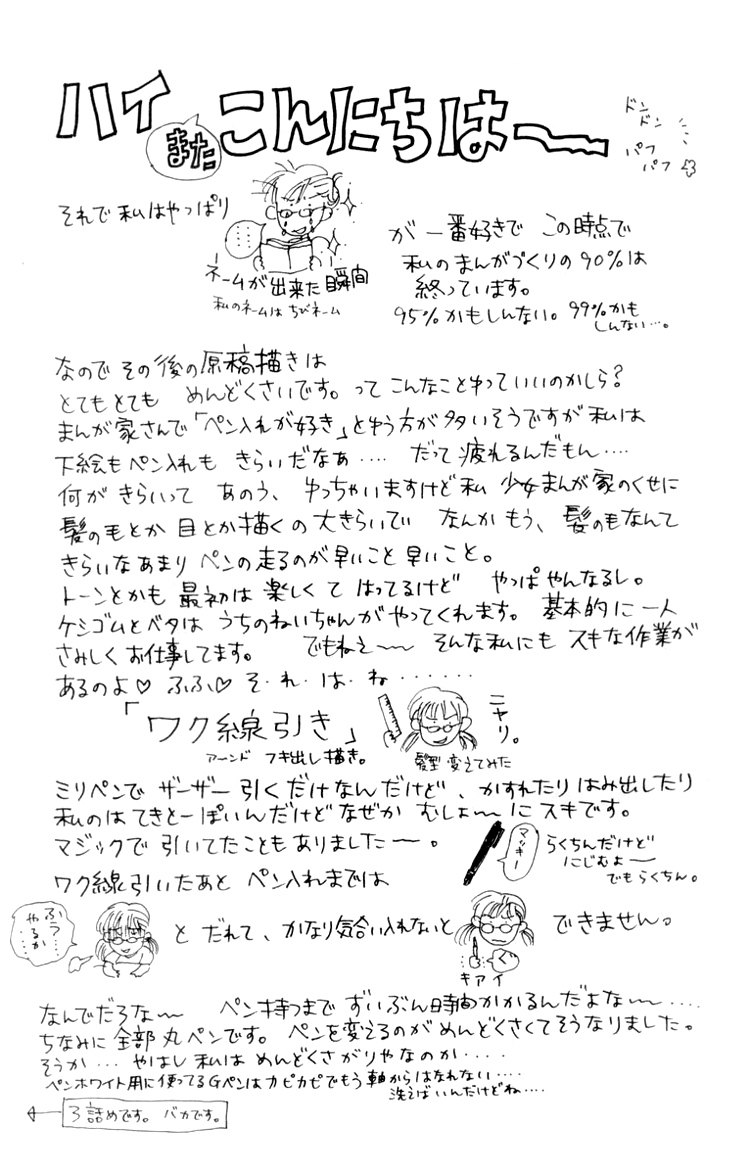 ハイ
また
こんにちは〜
ドン
ドン
パフ
パフ
それで 私はやっぱり
ネームが出来た瞬間
私のネームは ちびネーム
が 一番好きで この時点で
私のまんがづくりの90%は
終っています。
95%かもしんない。99%かも
しんない…。
なので その後の原稿描きは
とてもとても めんどくさいです。って こんなことゆっていいのかしら?
まんが家さんで「ペン入れが好き」とゆう方が多いそうですが 私は
下絵も ペン入れも きらいだなぁ‥‥ だって 疲れるんだもん‥‥
何が きらいって あのう、ゆっちゃいますけど 私 少女まんが家のくせに
髪の毛とか 目とか描くの 大きらいで なんか もう、髪の毛なんて
きらいなあまり ペンの走るのが早いこと 早いこと。
トーンとかも 最初は 楽しくて はってるけど やっぱ やんなるし。
ケシゴムとベタは うちのねいちゃんが やってくれます。 基本的に 一人
さみしく お仕事してます。 でもねえ〜〜 そんな私にも スキな作業が
あるのよ♡ ふふ♡ そ・れ・は・ね・・・・・・
「ワク線引き」
アーンド フキ出し描き。
ニヤリ。
髪型 変えてみた
ミリペンで ザーザー 引くだけなんだけど、かすれたり はみ出したり
私のは てきとーっぽいんだけど なぜか むしょ〜に スキです。
マジックで 引いてたことも ありました〜。
マッキー
らくちんだけど
にじむよ〜
でもらくちん。
ワク線引いたあと ペン入れまでは
ふぅ…
やるか…
と だれて、かなり気合い入れないと
キアイ
できません。
なんでだろな〜 ペン持つまで ずいぶん時間かかるんだよな〜‥‥
ちなみに 全部 丸ペンです。 ペンを変えるのが めんどくさくて そうなりました。
そうか… やはし 私は めんどくさがりやなのか‥‥
ペンホワイト用に使ってるGペンは カピカピで もう 軸からはなれない‥‥
洗えばいんだけどね‥‥
← 3詰めです。 バカです。